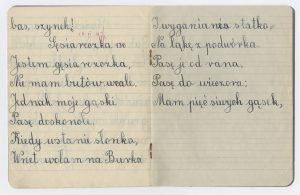 bas, szynek!
Gęsiareczka
Jestem gęsiareczka,
Nie mam butów wcale.
Jednak moje gąski
Pasę doskonale,
Kiedy wstanie słonko,
Wnet wołam na Burka
I wyganiam stadko
Na łąkę z podwórka.
Pasę je od rana,
Pasę do wieczora;
Mam pięć siwych gąsek,